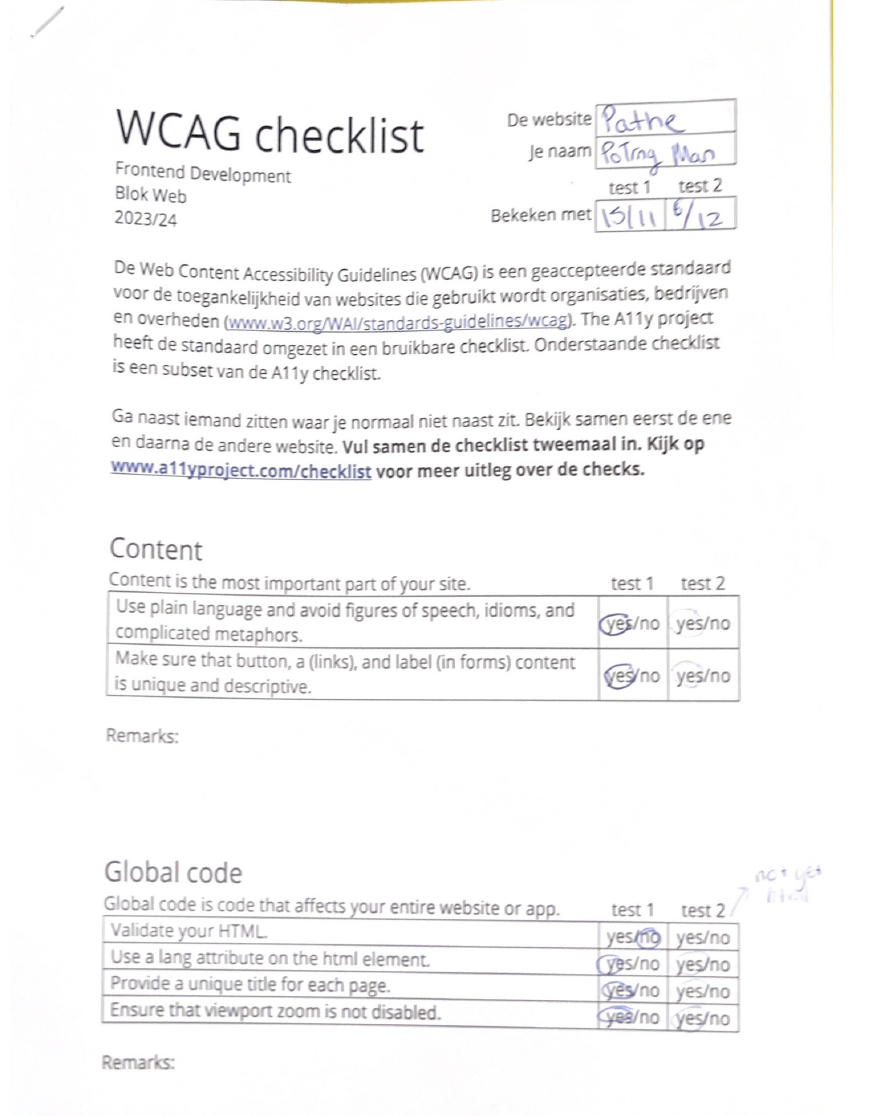 WCAG checklist
Frontend Development
Blok Web
2023/24
De website Pathe
Je naam PoTing Man
test 1 test 2
Bekeken met 15/11 6/12
De Web Content Accessibility Guidelines (WCAG) is een geaccepteerde standaard
voor de toegankelijkheid van websites die gebruikt wordt organisaties, bedrijven
en overheden (www.w3.org/WAI/standards-guidelines/wcag). The A11y project
heeft de standaard omgezet in een bruikbare checklist. Onderstaande checklist
is een subset van de A11y checklist.
Ga naast iemand zitten waar je normaal niet naast zit. Bekijk samen eerst de ene
en daarna de andere website. Vul samen de checklist tweemaal in. Kijk op
www.a11yproject.com/checklist voor meer uitleg over de checks.
Content
Content is the most important part of your site. test 1 test 2
Use plain language and avoid figures of speech, idioms, and
complicated metaphors. yes/no yes/no
Make sure that button, a (links), and label (in forms) content
is unique and descriptive. yes/no yes/no
Remarks:
Global code
not yet
html
Global code is code that affects your entire website or app. test 1 test 2
Validate your HTML. yes/no yes/no
Use a lang attribute on the html element. yes/no yes/no
Provide a unique title for each page. yes/no yes/no
Ensure that viewport zoom is not disabled. yes/no yes/no
Remarks: